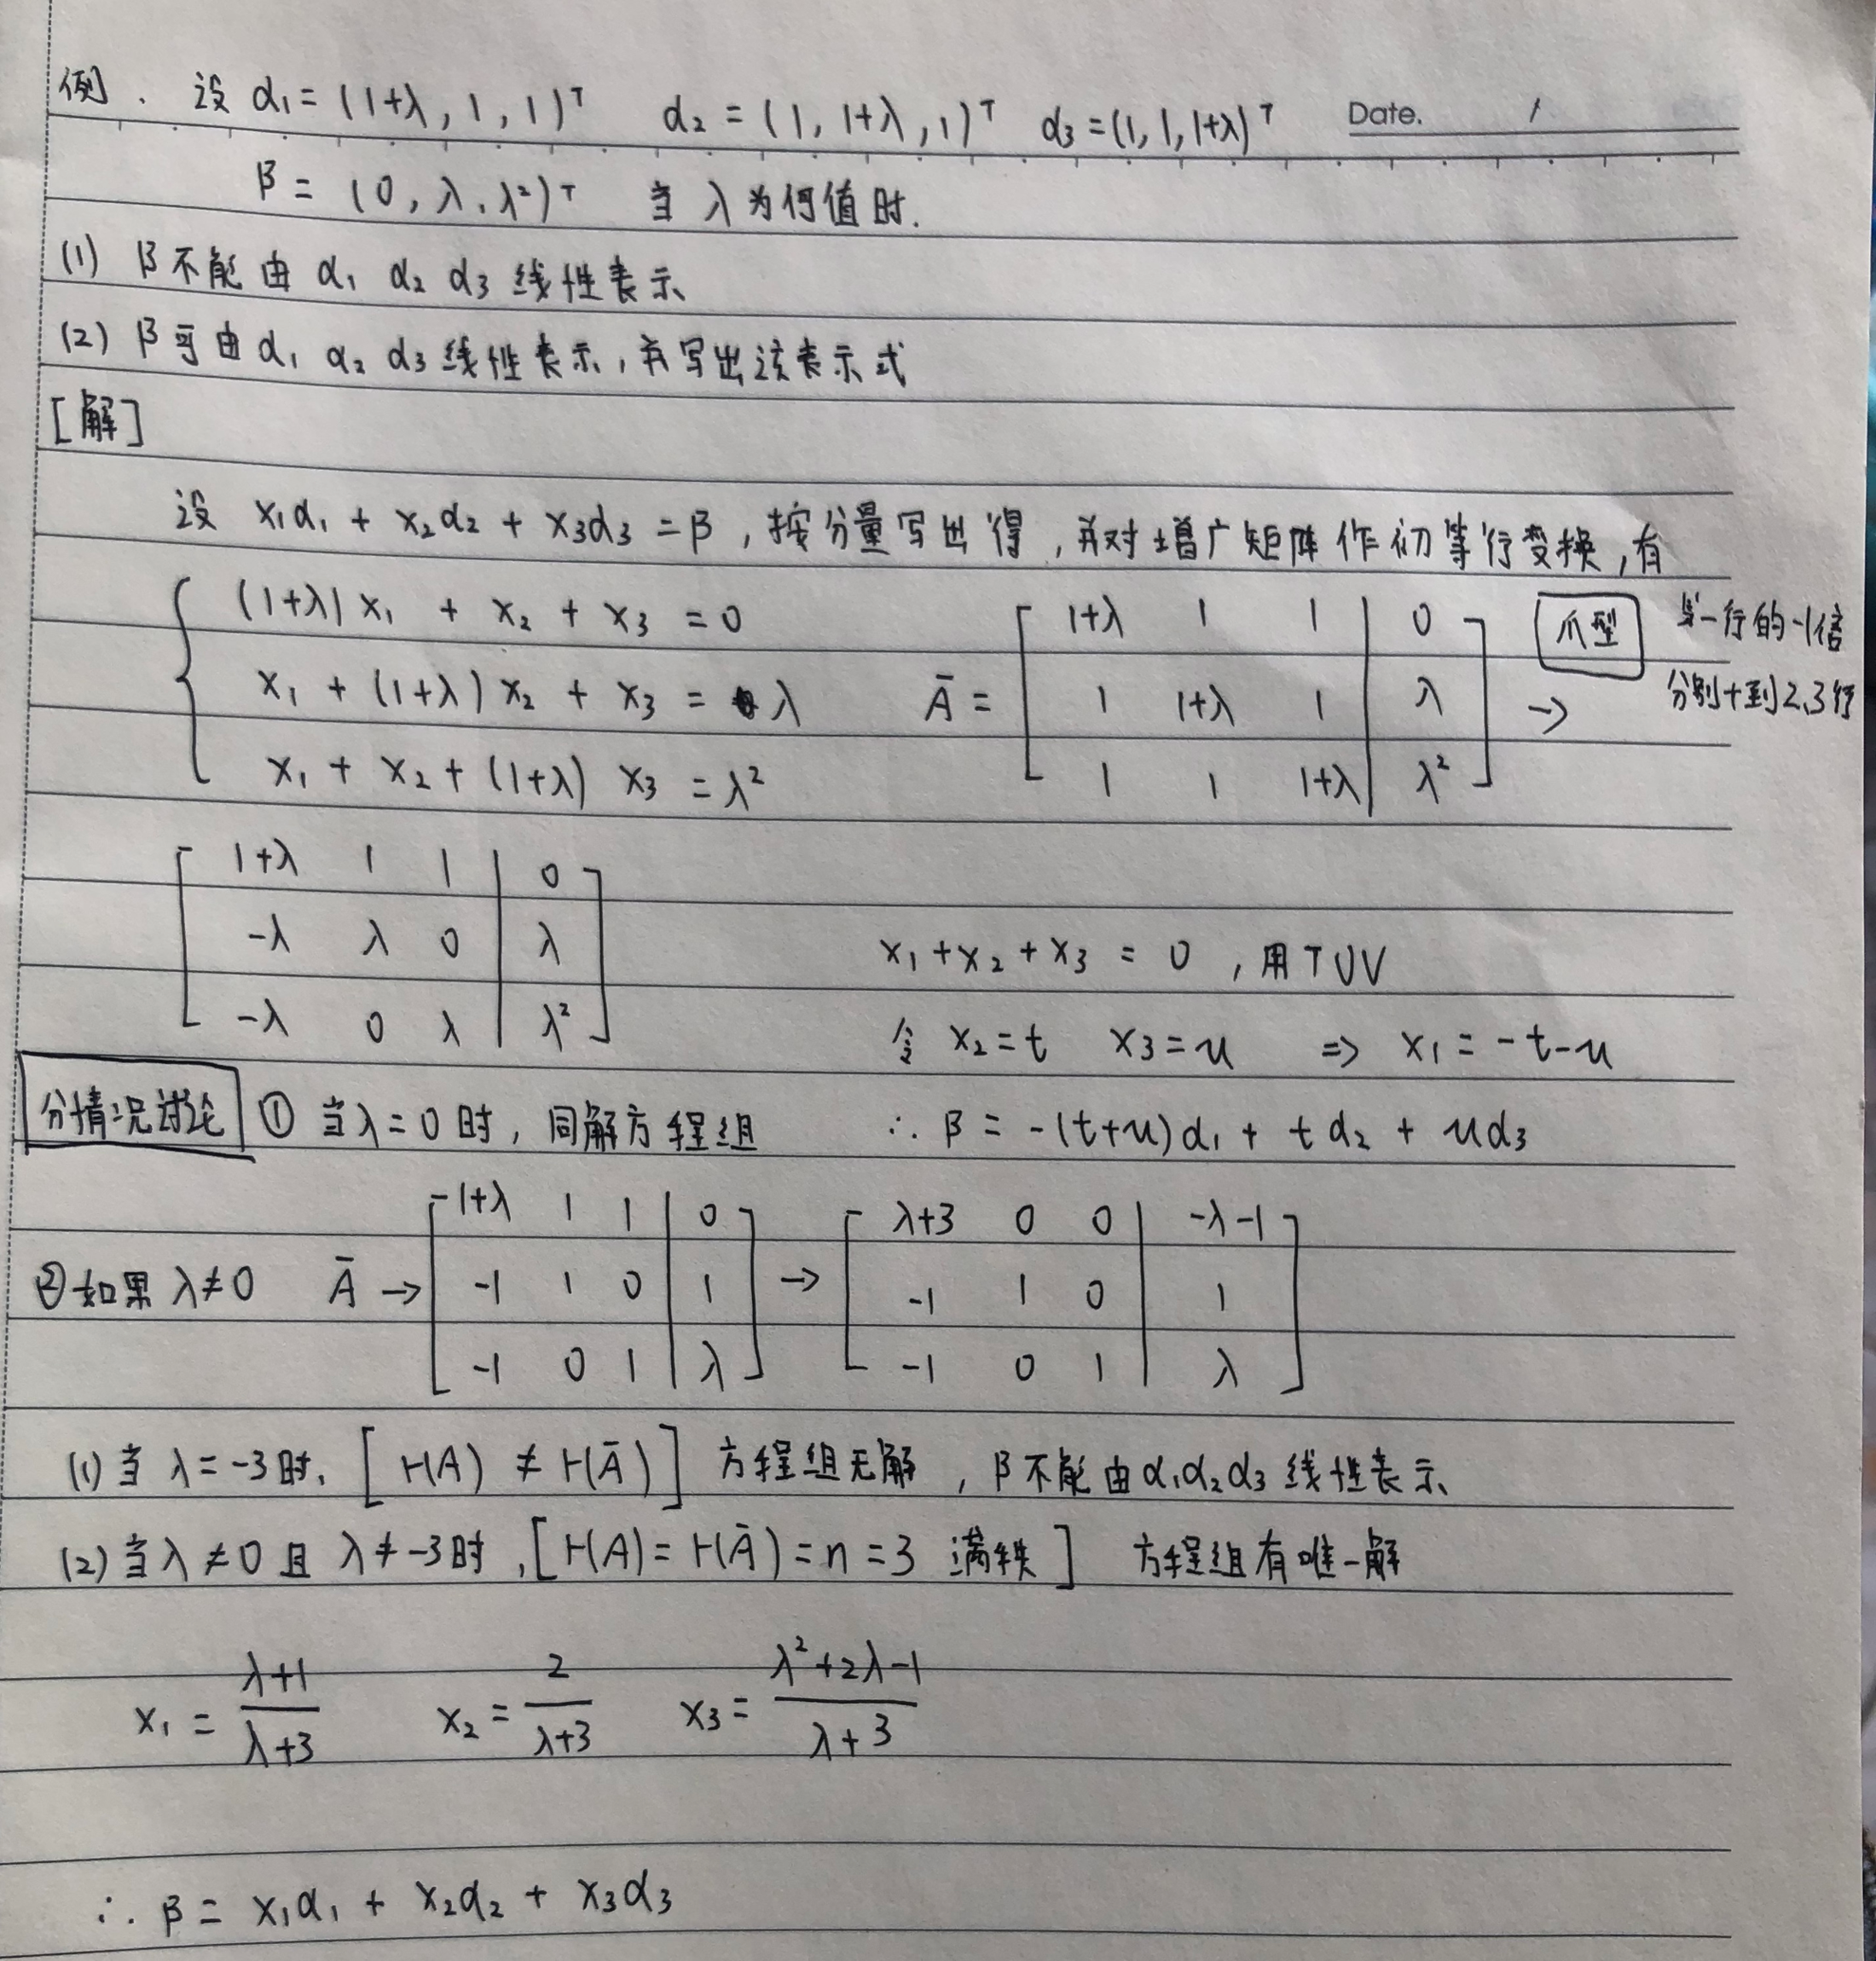 例. 设 α₁ = (1+λ, 1, 1)ᵀ α₂ = (1, 1+λ, 1)ᵀ α₃ = (1, 1, 1+λ)ᵀ Date. /
β = (0, λ, λ²)ᵀ 当 λ 为何值时.
(1) β不能由 α₁ α₂ α₃ 线性表示
(2) β可由 α₁ α₂ α₃ 线性表示, 并写出该表示式
[解]
设 x₁α₁ + x₂α₂ + x₃α₃ = β, 按分量写出得, 并对增广矩阵作初等行变换, 有
(1+λ)x₁ + x₂ + x₃ = 0
x₁ + (1+λ)x₂ + x₃ = λ
x₁ + x₂ + (1+λ) x₃ = λ²
Ā =
1+λ 1 1 | 0
1 1+λ 1 | λ
1 1 1+λ | λ²
爪型 →
第一行的-1倍
分别+到2,3行
1+λ 1 1 | 0
-λ λ 0 | λ
-λ 0 λ | λ²
分情况讨论 ① 当λ=0时, 同解方程组
x₁ + x₂ + x₃ = 0, 用TUV
令 x₂ = t x₃ = u ⇒ x₁ = -t-u
∴ β = -(t+u)α₁ + tα₂ + uα₃
②如果 λ≠0 Ā →
1+λ 1 1 | 0
-1 1 0 | 1
-1 0 1 | λ
→
λ+3 0 0 | -λ-1
-1 1 0 | 1
-1 0 1 | λ
(1) 当 λ=-3时, [r(A) ≠ r(Ā)] 方程组无解, β不能由α₁α₂α₃线性表示
(2) 当λ≠0且 λ≠-3时, [r(A) = r(Ā) = n = 3 满秩] 方程组有唯一解
x₁ = λ+1/λ+3 x₂ = 2/λ+3 x₃ = λ²+2λ-1/λ+3
∴ β = x₁α₁ + x₂α₂ + x₃α₃